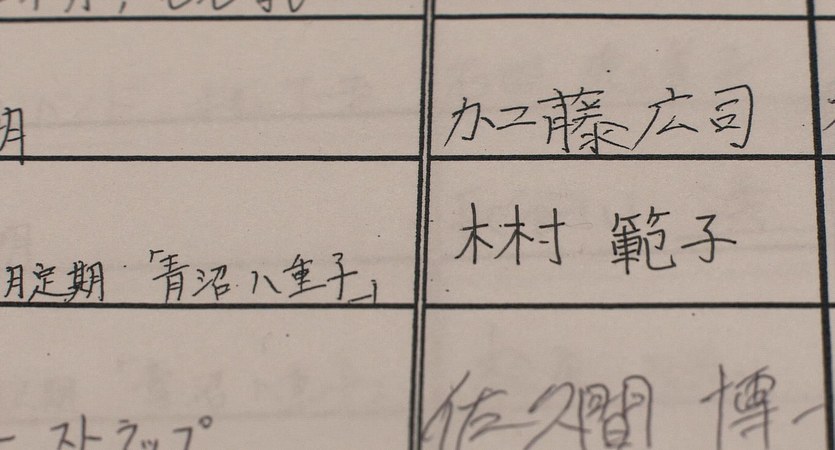 加工藤 広司
月定期 「青沼八重子」
木村 範子
ストラップ
佐久間 博一